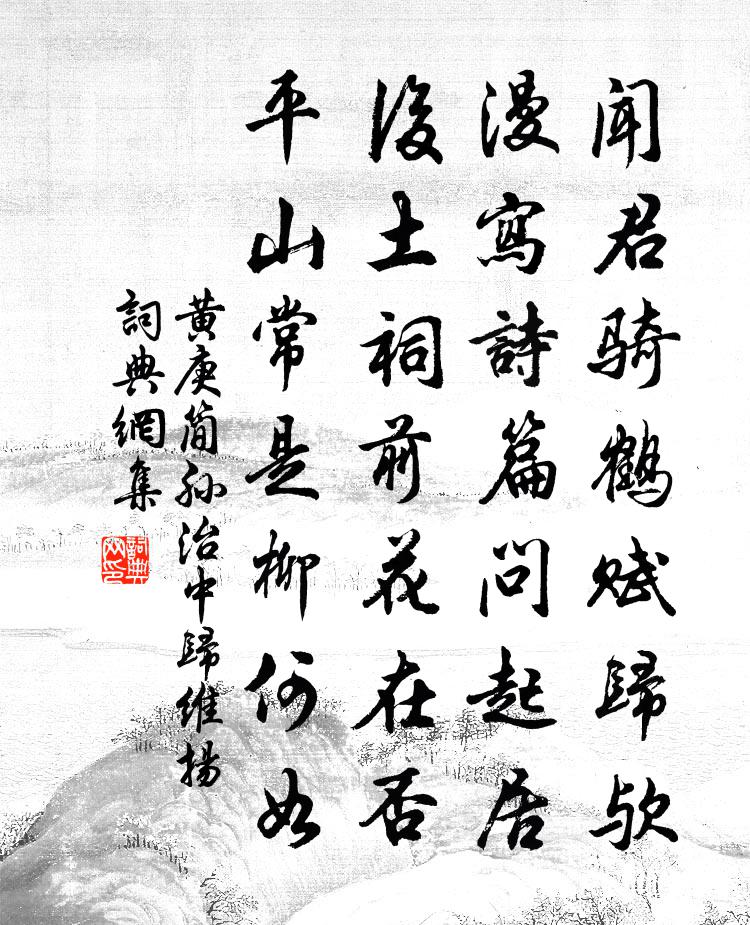 闻君骑鹤赋归欤
漫寫詩篇問起居
後土祠前花在否
平山常是柳何如
黄庚简孙治中歸维揚
詞典網集
詞典网印